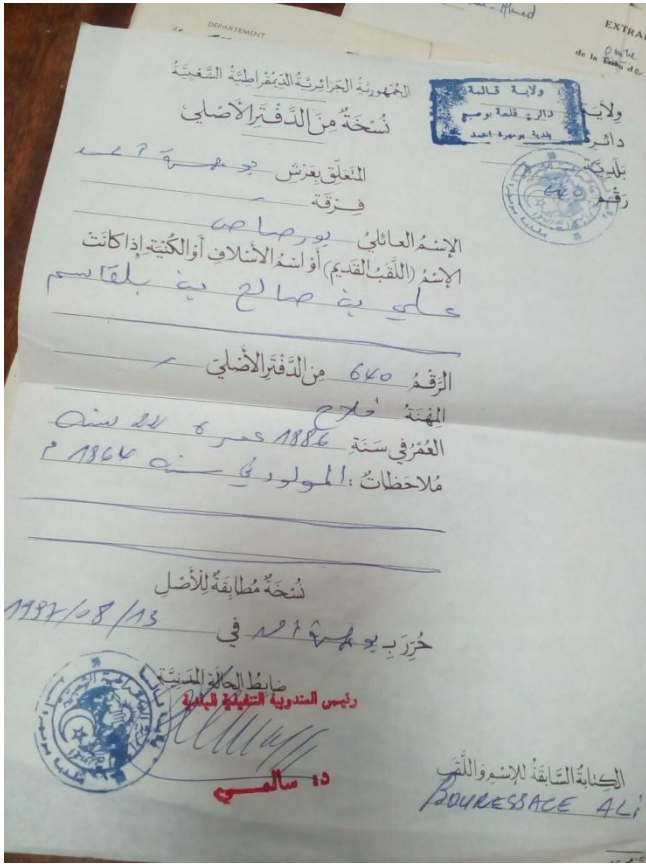 DEPARTEMENT
EXTRAI
de la
الجمهورية الجزائرية الديمقراطية الشعبية
ولاية قالمة
دائرة قلعة بوصبع
بلدية بومهرة احمد
ولاية
دائرة
بلدية
رقم 640
نُسْخَةٌ مِنَ الدَّفْتَرِ الأَصْلِي
المتعلق بعرش بومهرة أحمد
فرقة
الإسم العائلي بورصاص
الإسم (اللقب القديم) أو اسم الأسلاف أو الكنية إذا كانت
علي بن صالح بن بلقاسم
الرقم 640 من الدفتر الأصلي
المهنة فلاح
العمر في سنة 1886 عمره 22 سنة
ملاحظات : المولود في سنة 1864 م
نسخة مطابقة للأصل
حرر بـ بومهرة أحمد في 1997/08/13
ضابط الحالة المدنية
رئيس المندوبية التنفيذية البلدية
د. سالمي
الكتابة السابقة للإسم واللقب
BOURESSACE ALI